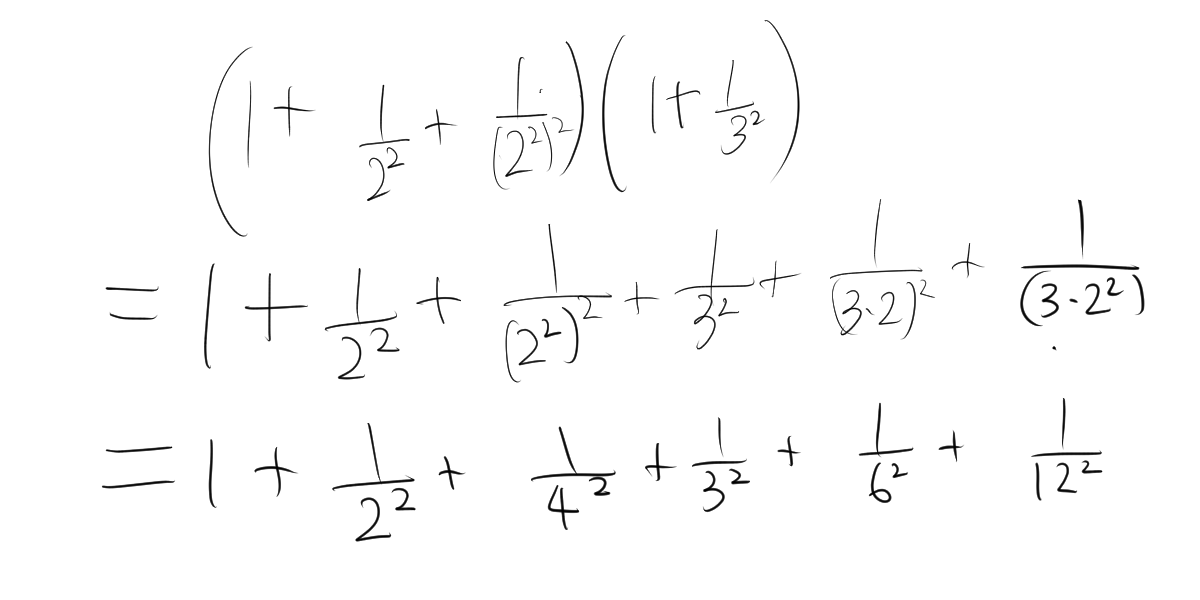 (1 + 1/2² + 1/(2²)²)(1 + 1/3²)
= 1 + 1/2² + 1/(2²)² + 1/3² + 1/(3·2)² + 1/(3·2²)
= 1 + 1/2² + 1/4² + 1/3² + 1/6² + 1/12²